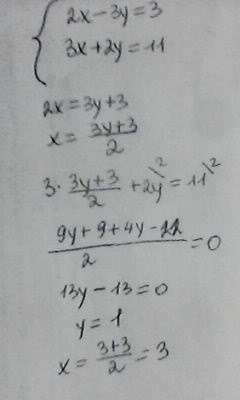 2x-3y=3
3x+2y=11
2x=3y+3
x=\frac{3y+3}{2}
3\cdot\frac{3y+3}{2}+2y^{\backslash 2}=11^{\backslash 2}
\frac{9y+9+4y-22}{2}=0
13y-13=0
y=1
x=\frac{3+3}{2}=3